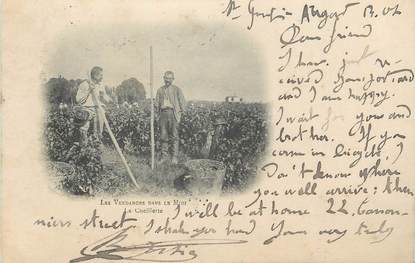 St Quentin August 13. 02
Dear friend
I have just re-
ceived your postcard
and I am happy.
I wait for you and
brother. If you
come in bicycle, I
don't know where
you will arrive; then
I will be at home 22, Canon-
niers street I shake your hand Yours very truly
LES VENDANGES DANS LE MIDI
La Cueillette